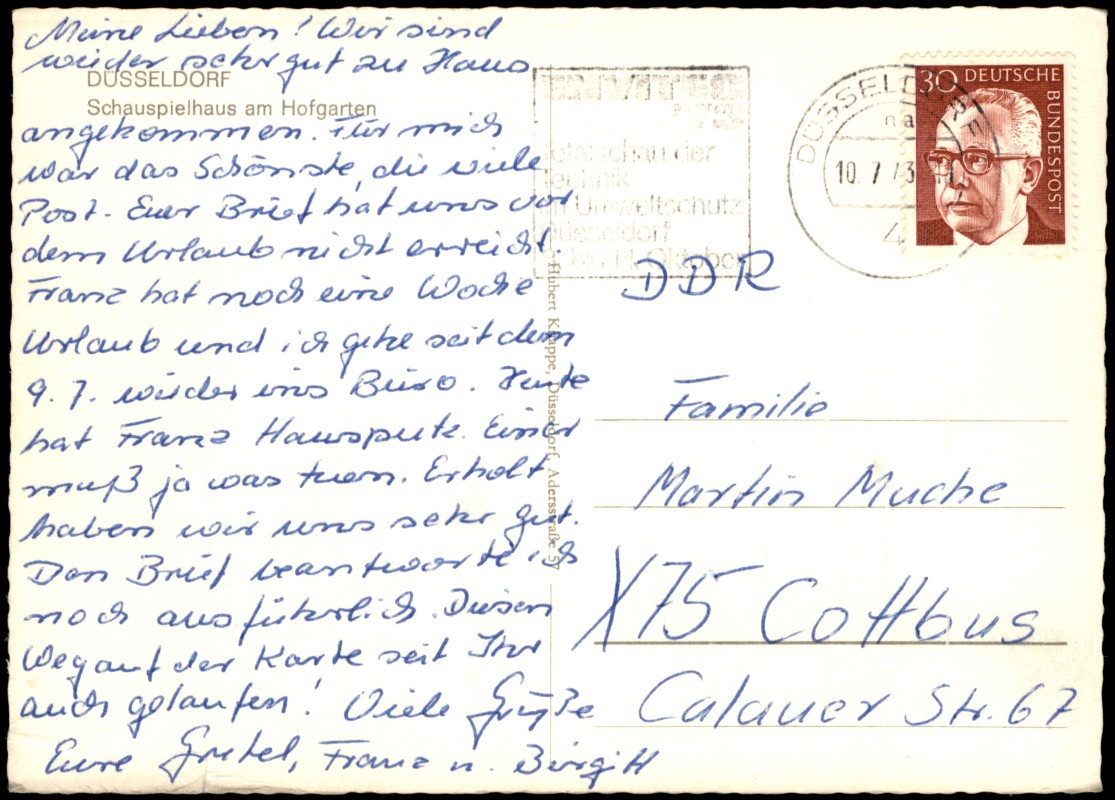 Meine Lieben! Wir sind
wieder sehr gut zu Haus
DÜSSELDORF
Schauspielhaus am Hofgarten
angekommen. Für mich
war das Schönste, die viele
Post. Euer Brief hat uns vor
dem Urlaub nicht erreicht
Franz hat noch eine Woche
Urlaub und ich gehe seit dem
9. 7. wieder ins Büro. Heute
hat Franz Hausputz. Einer
muß ja was tuen. Erholt
haben wir uns sehr gut.
Den Brief beantworte ich
noch ausführlich. Diesen
Weg auf der Karte seit Ihr
auch gelaufen! Viele Grüße
Eure Gretel, Franz u. Birgitt
Hubert Knappe, Düsseldorf, Adersstraße 57
ENVITEC
73
Totalschau der
Technik
im Umweltschutz
Düsseldorf
bis 14. Oktober
DÜSSELDORF
10. 7. 73
4
30 DEUTSCHE
BUNDESPOST
DDR
Familie
Martin Muche
X75 Cottbus
Calauer Str. 67